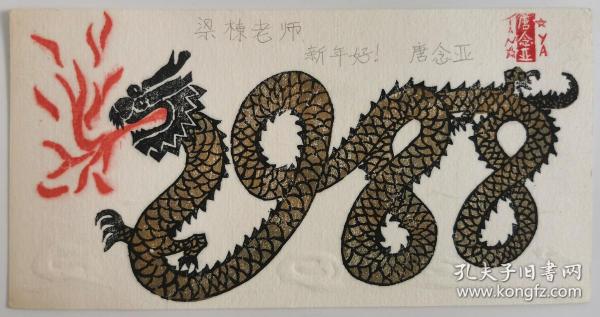 梁栋老师
新年好! 唐念亚
唐念亚
TANG
☆YA
1988
孔夫子旧书网
www.kongfz.com